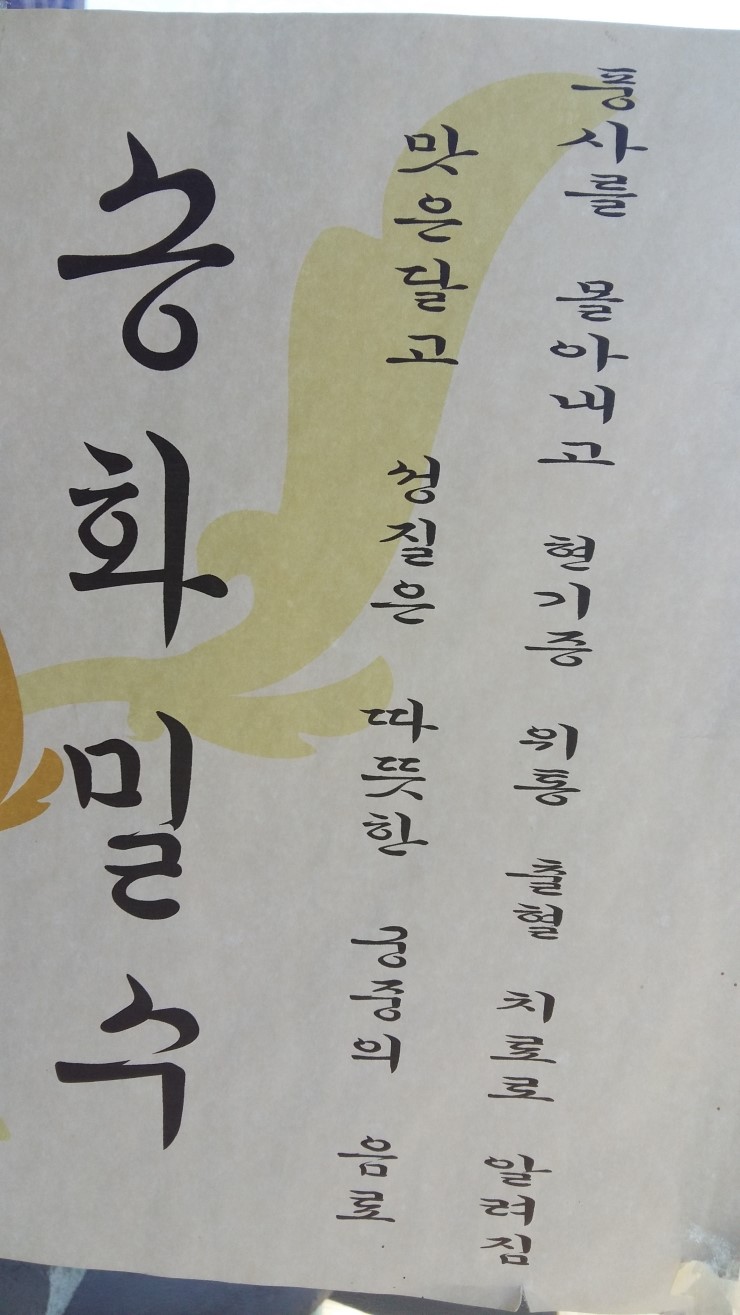 풍사를 몰아내고 현기증 위통 출혈 치료로 알려짐
맛은달고 성질은 따뜻한 궁중의 음료
송화밀수